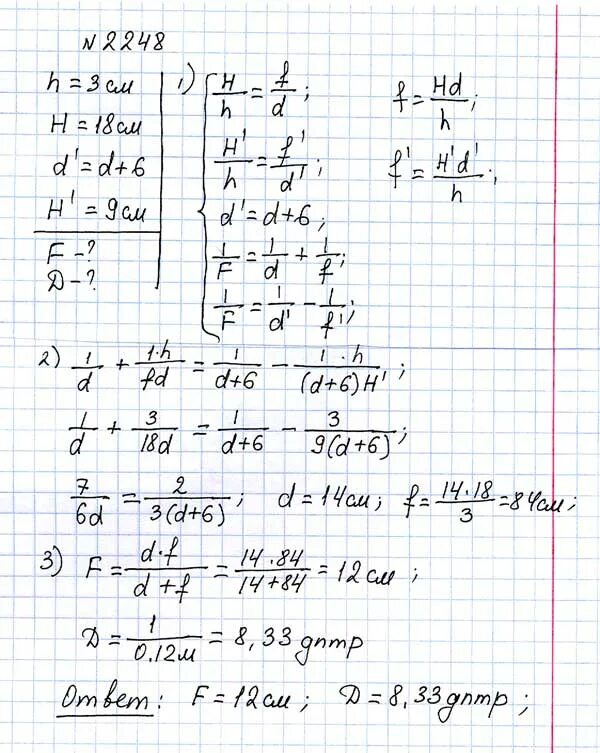 N2248
h = 3 см
H = 18 см
d' = d+6
H' = 9 см
F - ?
D - ?
1) H/h = f/d; f = Hd/h;
H'/h = f'/d'; f' = H'd'/h;
d' = d+6;
1/F = 1/d + 1/f;
1/F = 1/d' - 1/f';
2) 1/d + 1·h/fd = 1/d+6 - 1·h/(d+6)H';
1/d + 3/18d = 1/d+6 - 3/9(d+6);
7/6d = 2/3(d+6); d = 14 см; f = 14·18/3 = 84 см;
3) F = d·f/d+f = 14·84/14+84 = 12 см;
D = 1/0.12м = 8,33 дптр
Ответ: F = 12 см; D = 8,33 дптр;